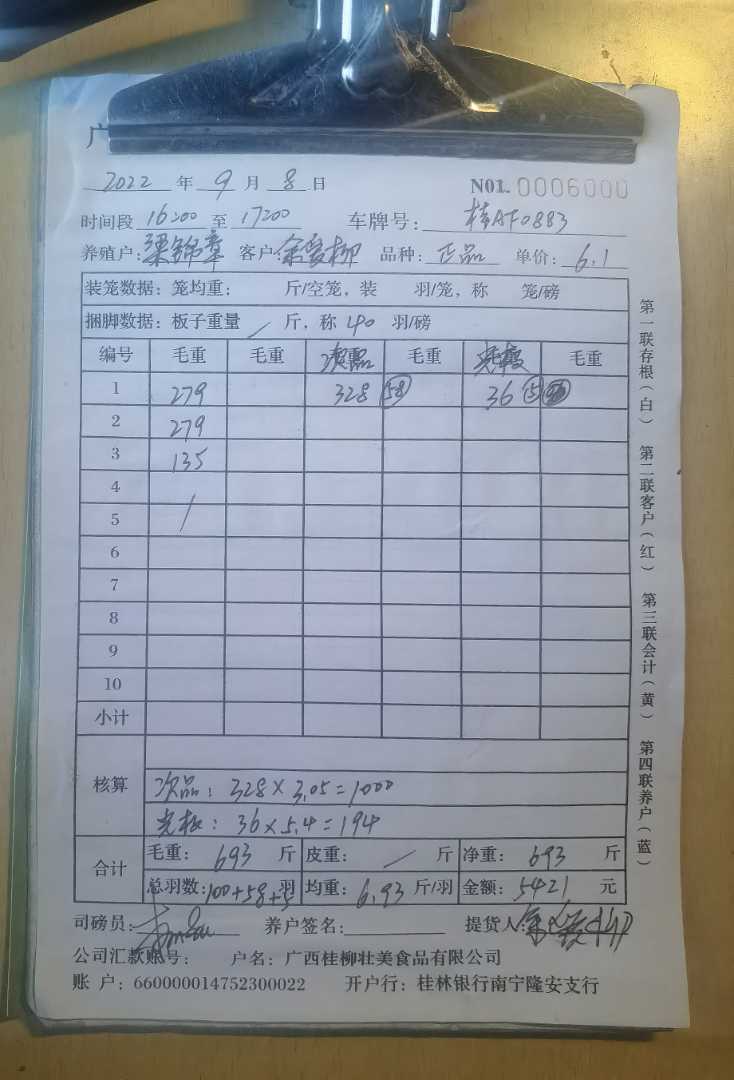 广
2022 年 9 月 8 日 N01. 0006000
时间段 16:00 至 17:00 车牌号: 桂AF0883
养殖户: 梁锦章 客户: 品种: 正品 单价: 6.1
装笼数据: 笼均重: 斤/空笼, 装 羽/笼, 称 笼/磅
捆脚数据: 板子重量 / 斤, 称 40 羽/磅
编号 毛重 毛重 次品 毛重 毛重
1 279 328 58 36 5
2 279
3 135
4
5 /
6
7
8
9
10
小计
核算
次品: 328×3.05=1000
36×5.4=194
合计 毛重: 693 斤 皮重: / 斤 净重: 693 斤
总羽数: 100+58+5 羽 均重: 6.93 斤/羽 金额: 5421 元
司磅员: 养户签名: 提货人:
公司汇款账号: 户名: 广西桂柳壮美食品有限公司
账 户: 660000014752300022 开户行: 桂林银行南宁隆安支行
第一联存根(白) 第二联客户(红) 第三联会计(黄) 第四联养户(蓝)